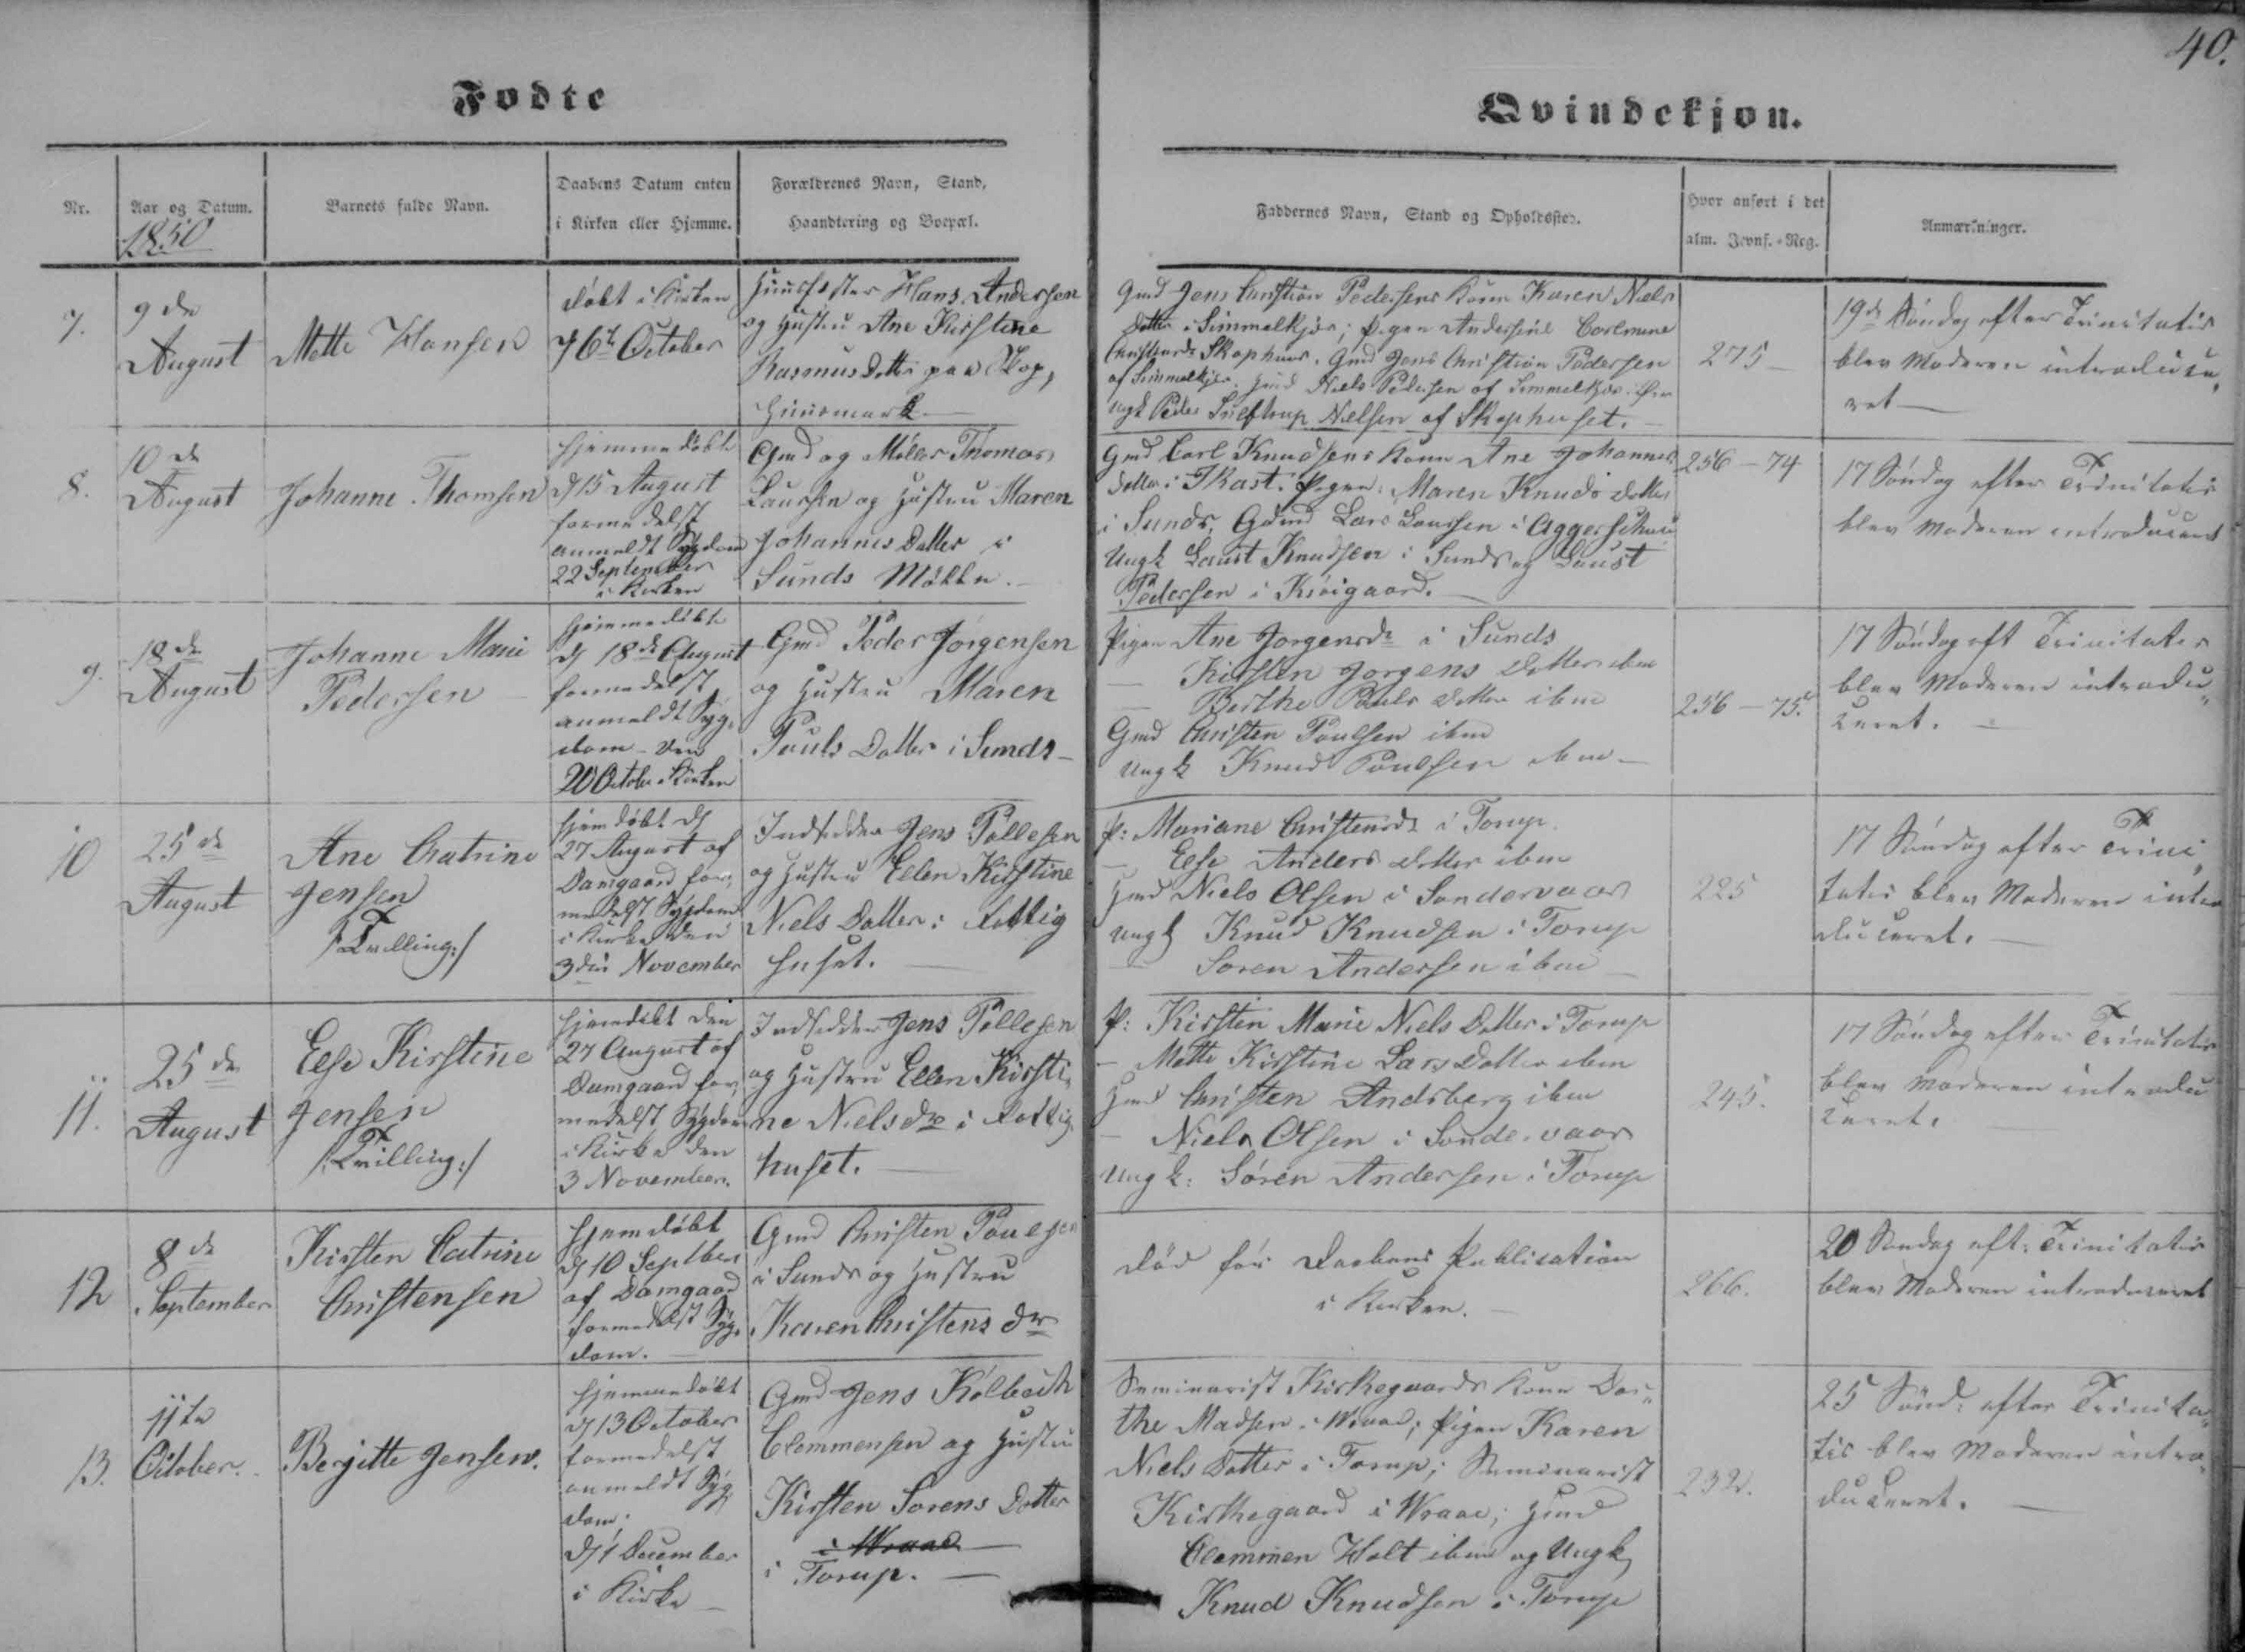 40.
Fødte
Qvindekjøn.
Nr.
Aar og Datum.
1850
Barnets fulde Navn.
Daabens Datum enten
i Kirken eller Hjemme.
Forældrenes Navn, Stand,
Haandtering og Boepæl.
Faddernes Navn, Stand og Opholdssted.
Hvor anført i det
alm. Jevnf.-Reg.
Anmærkninger.
7.
9de
August
Mette Hansen
døbt i Kirken
d 6te October
Huusfæster Hans Andersen
og Hustru Ane Kirstine
Rasmus Datter paa Skop,
Huusmark
Gmd Jens Christian Pedersens Kone Karen Niels
Datter i Simmelkjær; Pigen Andersine Carlmine
Skophuus. Gmd Jens Christian Pedersen
af Simmelkjær. Hmd Niels Pedersen af Simmelkjær
Ungk Peder Nielsen af Skophuset.
275
19de Søndag efter Trinitatis
blev Moderen introduce,
ret
8.
10de
August
Johanne Thomsen
Hjemmedøbt
d 15 August
formedelst
anmeldt Sygdom
22 September
i Kirken
Gmd og Møller Thomas
Laursen og Hustru Maren
Johannes Datter i
Sunds Mølle.
Gmd Carl Knudsens Kone Ane Johannes
Datter i Ikast. Pigen Maren Knuds Datter
i Sunds. Gmd Lars Laursen i
Ungk Laust Knudsen i Sunds og Laust
Pedersen i Krøigaard.
256-74
17 Søndag efter Trinitatis
blev Moderen introduceret
9.
18de
August
Johanne Marie
Pedersen
Hjemmedøbt
d 18de August
formedelst
anmeldt Syg,
dom - den
20 October i Kirken
Gmd Peder Jørgensen
og Hustru Maren
Pouls Datter i Sunds
Pigen Ane Jorgensdr i Sunds
— Kirsten Jorgens Datter ibm
— Birthe Pouls Datter ibm
Gmd Christen Poulsen ibm
Ungk Knud Poulsen ibm
256-75.
17 Søndag eft Trinitatis
blev Moderen introdu,
ceret.
10
25de
August
Ane Catrine
Jensen
/:Tvilling:/
Hjemdøbt d
27 August af
Damgaard for,
medelst Sygdom
i Kirke den
3die November
Indsidder Jens Pallesen
og Hustru Ellen Kirstine
Niels Datter i Fattig
huset.
P: Mariane Christensdr i Torup
— Else Anders Datter ibm
Hmd Niels Olsen i Sondervaar
Ungk Knud Knudsen i Torup
— Soren Andersen ibm
225
17 Søndag efter Trini,
tatis blev Moderen intro
duceret.
11.
25de
August
Else Kirstine
Jensen
/:Tvilling:/
Hjemdøbt den
27 August af
Damgaard for,
medelst Sygdom
i Kirke den
3 November.
Indsidder Jens Pallesen
og Hustru Ellen Kirsti,
ne Nielsdr i Fattig
huset.
P: Kirsten Marie Niels Datter i Torup
— Mette Kirstine Lars Datter ibm
Hmd Christen Andsberg ibm
— Niels Olsen i Søndervaar
Ungk: Søren Andersen i Torup
245.
17 Søndag efter Trinitatis
blev Moderen introdu
ceret.
12
8de
September
Kirsten Catrine
Christensen
Hjemdøbt
d 10 Septbr
af Damgaard
formedelst Syg,
dom.
Gmd Christen Poulsen
i Sunds og Hustru
Karen Christens dr
Død før Daabens Publication
i Kirken.
266.
20 Søndag eft: Trinitatis
blev Moderen introduceret
13.
11te
October.
Birgitte Jensen.
Hjemmedøbt
d 13 October
formedelst
anmeldt Syg
dom;
d 1 December
i Kirke
Gmd Jens Kølbech
Clemmensen og Hustru
Kirsten Sorens Datter
i Wraae
i Torup.
Seminarist Kirkegaards Kone Dor,
the Madsen i Wraae; Pigen Karen
Niels Datter i Torup; Seminarist
Kirkegaard i Wraae; Hmd
Clemmen Holt ibm og Ungk
Knud Knudsen i Torup
232.
25 Sønd: efter Trinita,
tis blev Moderen intro,
duceret.